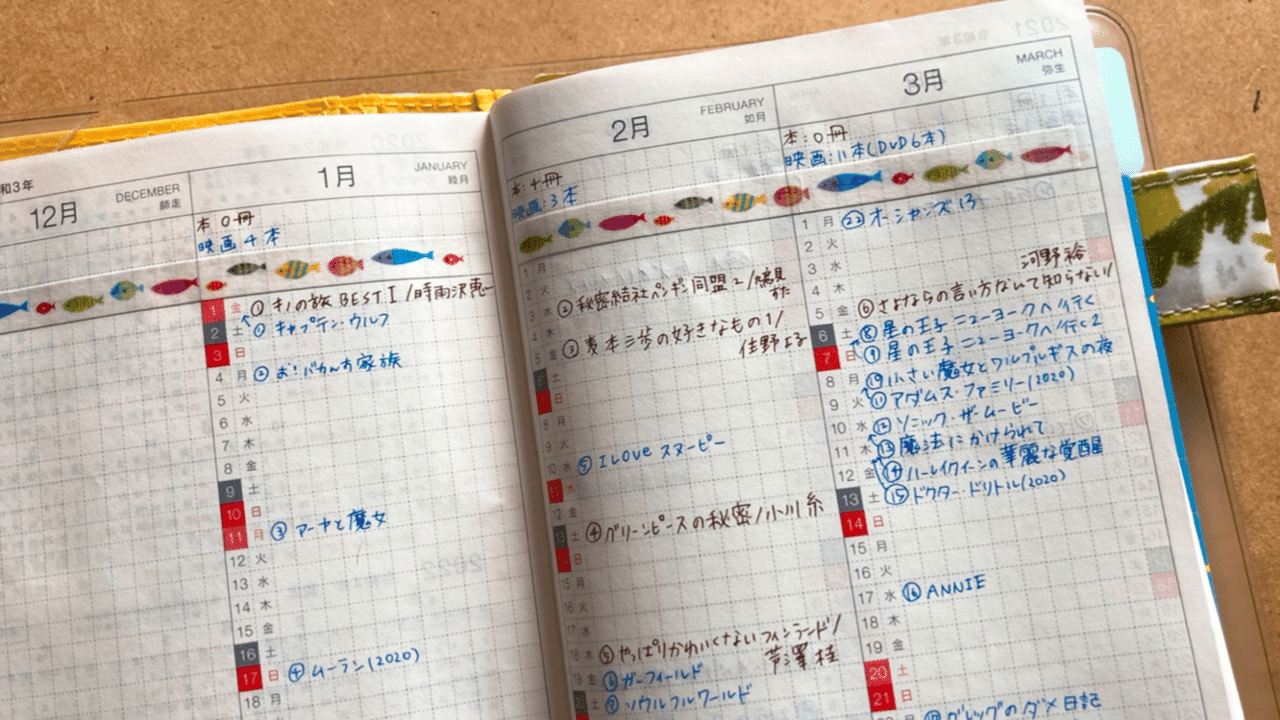 和3年
12月
DECEMBER
師走
1月
JANUARY
睦月
本 0冊
映画 4本
1 金 ① キノの旅 BEST I /時雨沢恵一
2 土 ① キャプテン・ウルフ
3 日
4 月 ② お!バカんす家族
5 火
6 水
7 木
8 金
9 土
10 日
11 月 ③ アーヤと魔女
12 火
13 水
14 木
15 金
16 土
17 日 ④ ムーラン(2020)
18 月
2月
FEBRUARY
如月
映画:3本
1 月
2 火
3 水 ② 秘密結社ペンギン同盟2/鳩見すた
4 木
5 金 ③ 麦本三歩の好きなもの1/
住野よる
6 土
7 日
8 月
9 火
10 水 ⑤ I Love スヌーピー
11 木
12 金
13 土 ④ グリーンピースの秘密/小川糸
14 日
15 月
16 火
17 水
18 木 ⑤ やっぱりかわいくないフィンランド/
芦澤桂
19 金 ⑥ ガーフィールド
20 土 ソウルフルワールド
2021
令和3年
3月
MARCH
弥生
本:0冊
映画:11本(DVD6本)
1 月 ㉒ オーシャンズ13
2 火
3 水
河野裕
4 木
5 金 ⑥ さよならの言い方なんて知らない/
6 土 ⑧ 星の王子ニューヨークへ行く
7 日 ⑨ 星の王子ニューヨークへ行く2
8 月 小さい魔女とワルプルギスの夜
9 火 ⑪ アダムス・ファミリー(2020)
10 水 ⑫ ソニック・ザ・ムービー
11 木 ⑬ 魔法にかけられて
12 金 ⑭ ハーレイクインの華麗な覚醒
13 土 ⑮ ドクター・ドリトル(2020)
14 日
15 月
16 火
17 水 ⑯ ANNIE
18 木
19 金
20 土
21 日
グレッグのダメ日記